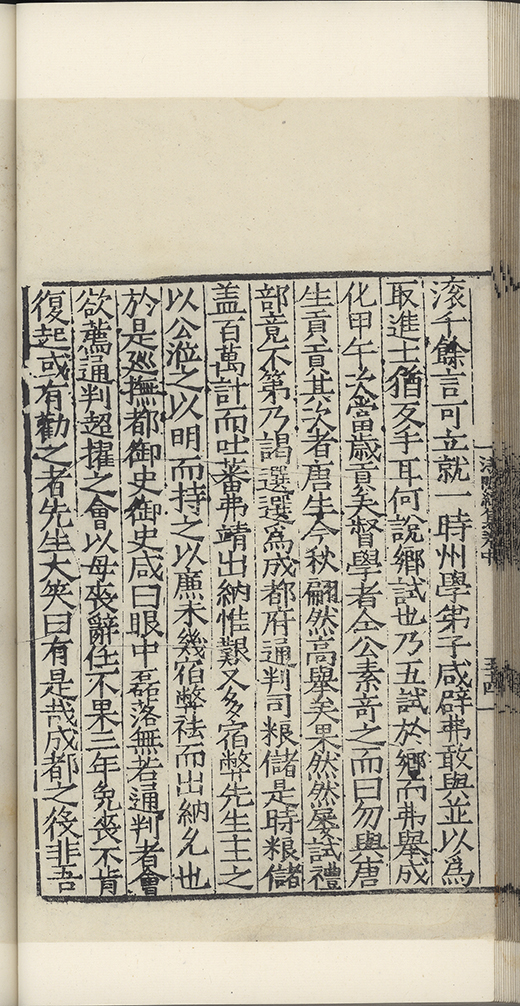 滚千餘言可立就一時州學弟子咸辟弗敢與並以爲
取進士猶反手耳何說鄉試也乃五試於鄉而弗舉成
化甲午次當歲貢矣督學者仝公素竒之而曰勿與唐
生貢貢其次者唐生今秋翩然高舉矣果然然屢試禮
部竟不第乃謁選選爲成都府通判司粮儲是時粮儲
盖百萬計而吐蕃弗靖出納惟艱又多宿弊先生主之
以公涖之以明而持之以廉未幾宿弊祛而出納允也
於是廵撫都御史御史咸曰眼中磊落無若通判者會
欲薦通判超擢之會以母喪辭任不果三年免喪不肯
復起或有勸之者先生大笑曰有是哉成都之後非吾